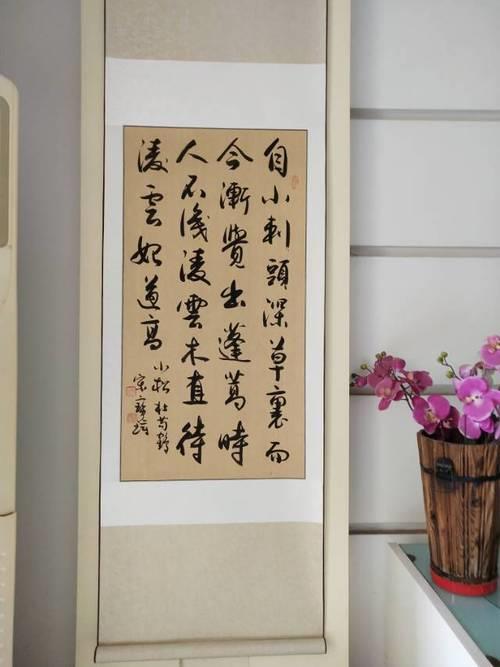 自小刺頭深草裏而
今漸覺出蓬蒿時
人不識凌雲木直待
凌雲始道高
小松 杜荀鶴
宋